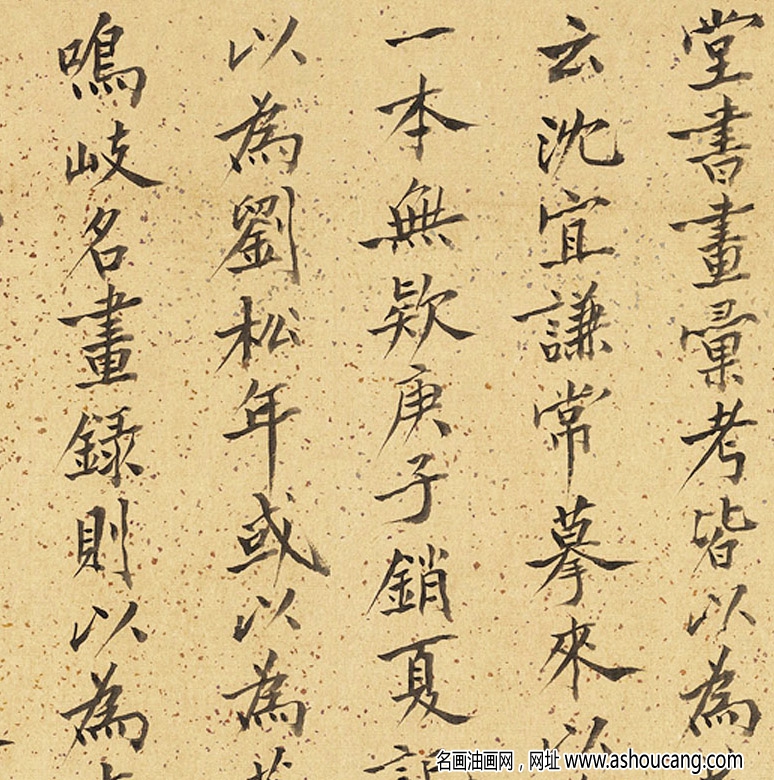 堂書畫彙考皆以為
云沈宜謙常摹來以
一本無欵庚子銷夏記
以為劉松年或以為
鳴岐名畫錄則以為
名画油画网，网址 www.ashoucang.com